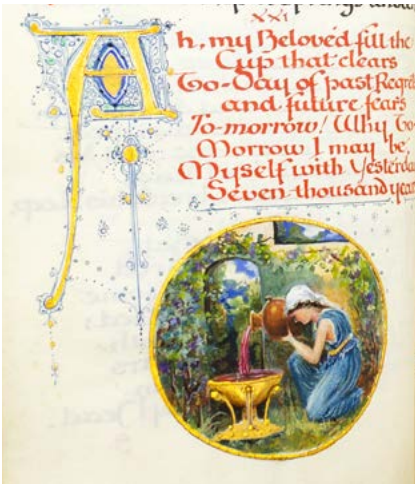 XXI
Ah, my Beloved fill the
Cup that clears
To-Day of past Regre
and future fears
To-morrow! Why To-
Morrow I may be,
Myself with Yesterda
Seven-thousand year